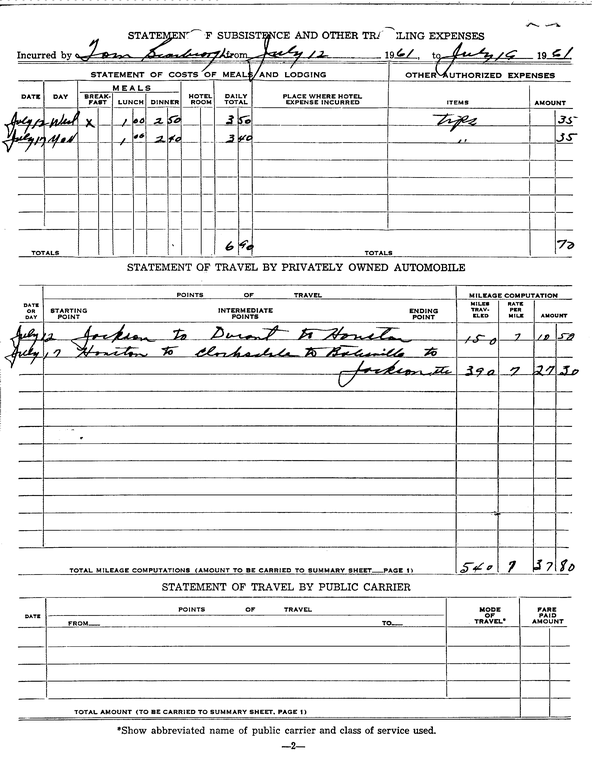 STATEMEN F SUBSISTENCE AND OTHER TRA ELING EXPENSES
Incurred by Tom Scarbrough from July 12 1961, to July 19 1961
STATEMENT OF COSTS OF MEALS AND LODGING OTHER AUTHORIZED EXPENSES
DATE DAY MEALS BREAK-FAST LUNCH DINNER HOTEL ROOM DAILY TOTAL PLACE WHERE HOTEL EXPENSE INCURRED ITEMS AMOUNT
July 12 Wed X 1 00 2 50 3 50 tips 35
July 17 Mon 1 00 2 40 3 40 " 35
TOTALS 6 90 TOTALS 70
STATEMENT OF TRAVEL BY PRIVATELY OWNED AUTOMOBILE
DATE OR DAY POINTS OF TRAVEL MILEAGE COMPUTATION
STARTING POINT INTERMEDIATE POINTS ENDING POINT MILES TRAV-ELED RATE PER MILE AMOUNT
July 12 Jackson to Durant to Houston 150 7 10 50
July 17 Houston to Clarksdale to Batesville to
Jackson etc 390 7 27 30
TOTAL MILEAGE COMPUTATIONS (AMOUNT TO BE CARRIED TO SUMMARY SHEET—PAGE 1) 540 7 37 80
STATEMENT OF TRAVEL BY PUBLIC CARRIER
DATE POINTS OF TRAVEL MODE OF TRAVEL* FARE PAID AMOUNT
FROM— TO—
TOTAL AMOUNT (TO BE CARRIED TO SUMMARY SHEET, PAGE 1)
*Show abbreviated name of public carrier and class of service used.
—2—